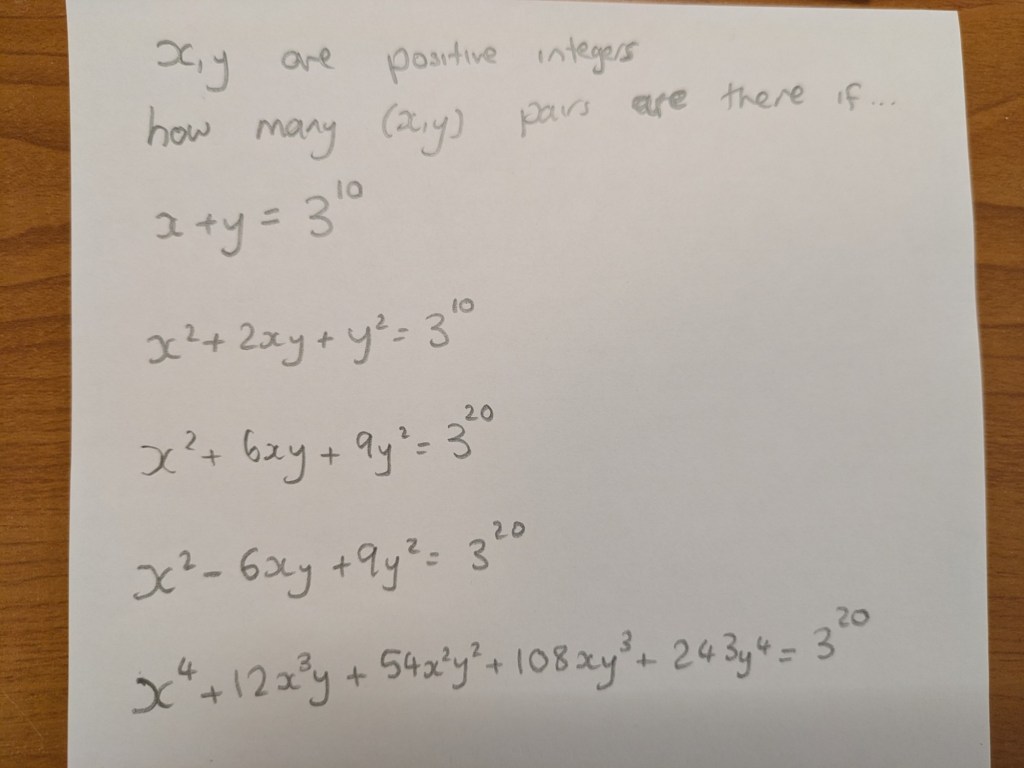 x,y are positive integers
how many (x,y) pairs are there if...
x + y = 3¹⁰
x² + 2xy + y² = 3¹⁰
x² + 6xy + 9y² = 3²⁰
x² - 6xy + 9y² = 3²⁰
x⁴ + 12x³y + 54x²y² + 108xy³ + 243y⁴ = 3²⁰